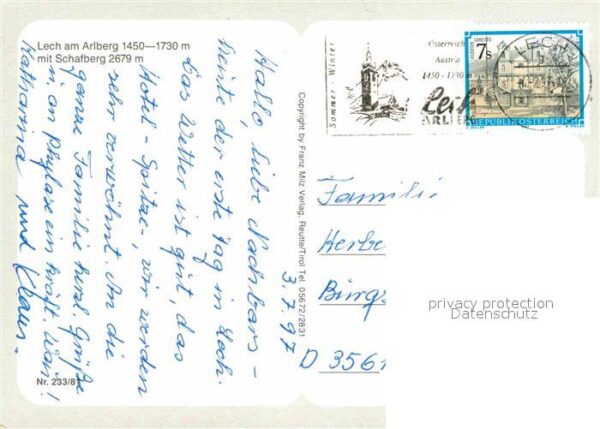 Lech am Arlberg 1450—1730 m
mit Schafberg 2679 m
Hallo, liebe Nachbars-
leute der erste Tag in Lech.
Das Wetter ist gut, das
Hotel - Spitze -, wir werden
sehr verwöhnt. An die
ganze Familie herzl. Grüße
u. an Phylaxe ein kräft. Wau!
Katharina und Klaus.
Nr. 233/81
Copyright by Franz Milz Verlag, Reutte/Tirol Tel. 05672/2831
3.7.97
Sommer · Winter
Österreich
Austria
1450 - 1730 m
Lech
ARLBERG
LECH
KLOSTER LORETTO
7 S
REPUBLIK ÖSTERREICH
Familie
Herbe
Bürgs
D 3561
privacy protection
Datenschutz